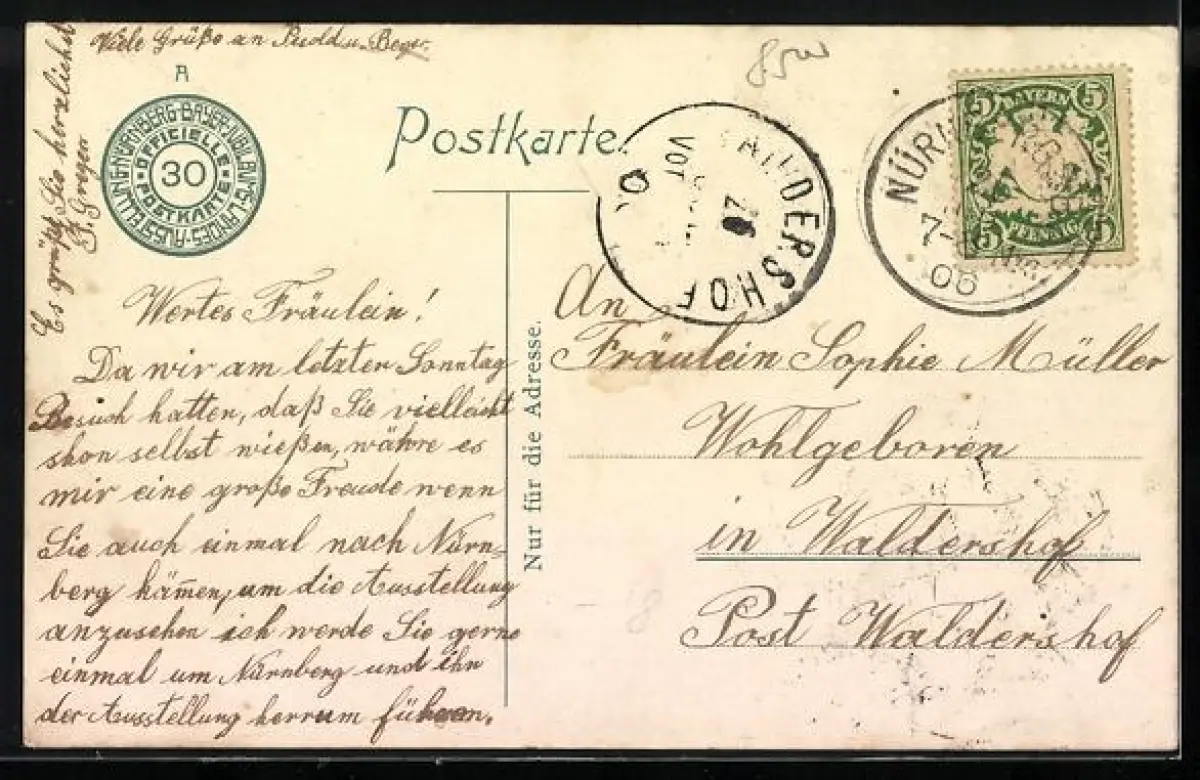 Viele Grüße an
Es grüßt Sie herzlichst
A
NÜRNBERG-BAYER-JUBILÄUMS-LANDES-AUSSTELLUNG
OFFICIELLE POSTKARTE
30
Postkarte
85
5 BAYERN 5
5 PFENNIG 5
NÜRN
7-8 Nm.
06
WALDERSHOF
VOR
26
Wertes Fräulein!
Da wir am letzten Sonntag
Besuch hatten, daß Sie vielleicht
shon selbst wießen, währe es
mir eine große Freude wenn
Sie auch einmal nach Nürn-
berg kämen, um die Ausstellung
anzusehen ich werde Sie gerne
einmal um Nürnberg und ihn
der Ausstellung herrum führen.
Nur für die Adresse.
An
Fräulein Sophie Müller
Wohlgeboren
in Waldershof
Post Waldershof